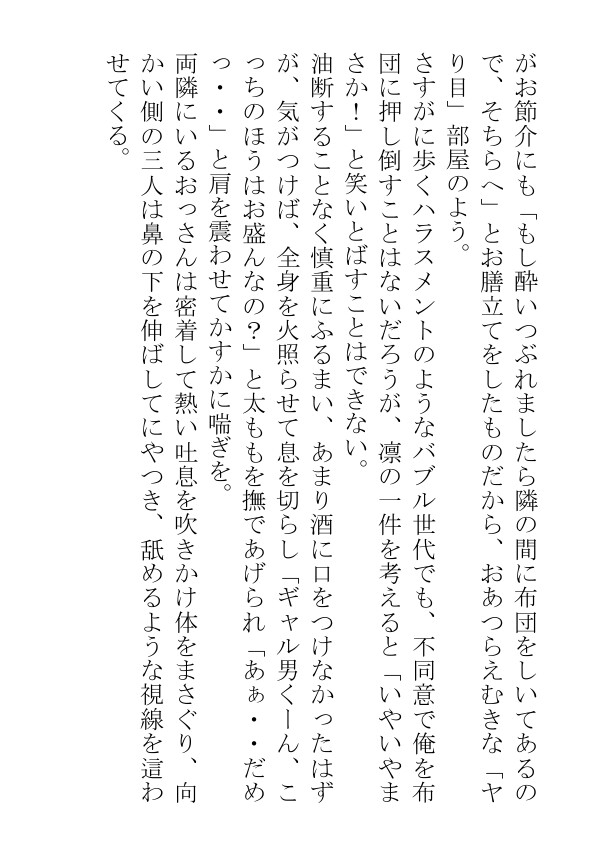 がお節介にも「もし酔いつぶれましたら隣の間に布団をしいてあるの
で、そちらへ」とお膳立てをしたものだから、おあつらえむきな「ヤ
り目」部屋のよう。
さすがに歩くハラスメントのようなバブル世代でも、不同意で俺を布
団に押し倒すことはないだろうが、凛の一件を考えると「いやいやま
さか！」と笑いとばすことはできない。
油断することなく慎重にふるまい、あまり酒に口をつけなかったはず
が、気がつけば、全身を火照らせて息を切らし「ギャル男くーん、こ
っちのほうはお盛んなの？」と太ももを撫であげられ「あぁ・・だめ
っ・・」と肩を震わせてかすかに喘ぎを。
両隣にいるおっさんは密着して熱い吐息を吹きかけ体をまさぐり、向
かい側の三人は鼻の下を伸ばしてにやつき、舐めるような視線を這わ
せてくる。